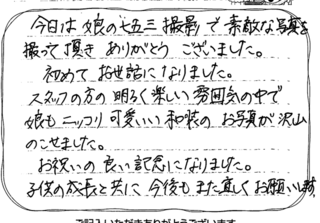 今日は娘の七五三撮影で素敵な写真を
撮って頂きありがとうございました。
初めてお世話になりました。
スタッフの方の明るく楽しい雰囲気の中で
娘もニッコリ可愛いい和装のお写真が沢山
のこせました。
お祝いの良い記念になりました。
子供の成長と共に今後もまた宜しくお願いします
ご記入いただきありがとうございます